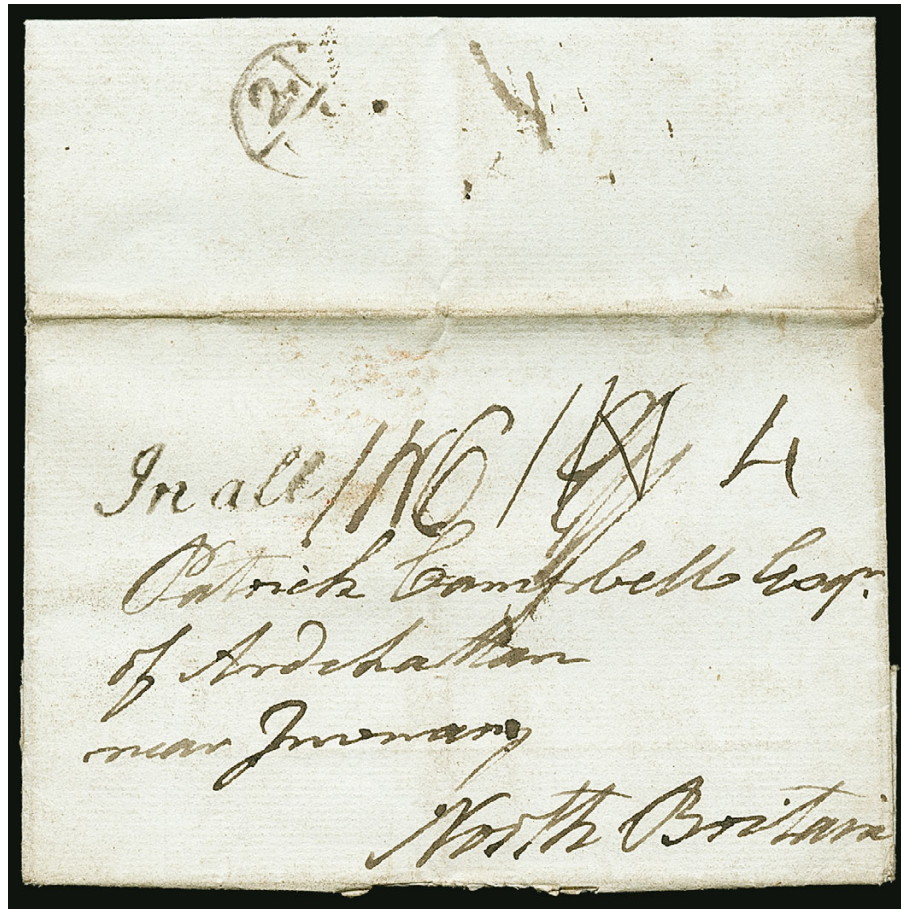 21
In all 1/10
4
Patrick Campbell Esqr.
of Ardchattan
near Inverary
North Britain